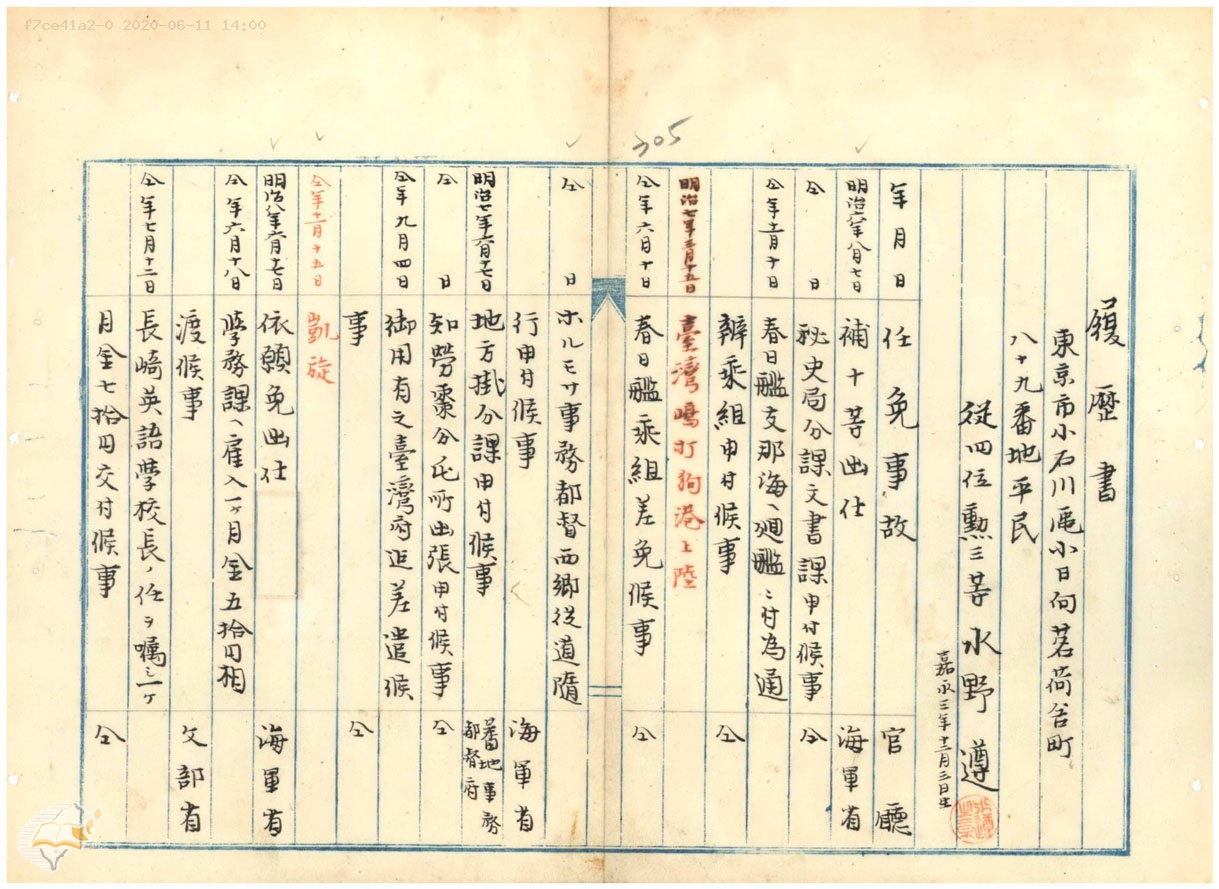 f7ce41a2-0 2020-06-11 14:00
305
履歴書
東京市小石川區小日向茗荷谷町
八十九番地平民
従四位勲三等 水野 遵
嘉永三年十二月三日生
年月日 任免事故 官廳
明治六年八月七日 補十等出仕 海軍省
仝 日 秘史局分課文書課申付候事 仝
仝年十一月十日 春日艦支那海ヘ廻艦ニ付為通
辨乗組申付候事 仝
明治七年三月十五日 臺湾嶋打狗港上陸
仝年六月十日 春日艦乗組差免候事 仝
仝 日 ホルモサ事務都督西郷従道隨
行申付候事 海軍省
明治七年六月十七日 地方掛分課申付候事 蕃地事務
都督府
仝 日 知勞粟分屯所出張申付候事 仝
仝年九月四日 御用有之臺湾府迄差遣候
事 仝
仝年十二月十五日 凱旋
明治八年六月十七日 依願免出仕 海軍省
仝年六月十八日 學務課ヘ雇入一ヶ月金五拾円相
渡候事 文部省
仝年七月十二日 長崎英語學校長ノ任ヲ嘱シ一ヶ
月金七拾円交付候事 仝